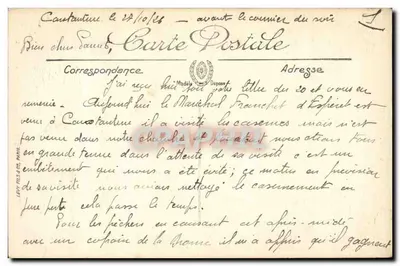 Constantine le 27/10/26 - avant le courrier du soir
Bien chers Parents,
Carte Postale
Correspondance
Adresse
J'ai reçu hier soir votre lettre du 20 et vous en
remercie. Aujourd'hui le Maréchal Franchet d'Esperet est
venu à Constantine il a visité les casernes mais n'est
pas venu dans notre nous étions tous
en grande tenue dans l'attente de sa visite c'est un
embêtement qui nous a été évité; ce matin en prévision
de sa visite nous avions nettoyé le casernement en
pure perte cela passe le temps.
Pour les pêchers en causant cet après-midi
avec un copain de la Drome il m'a appris qu'il gagnent
LEVY FILS & CIE, PARIS